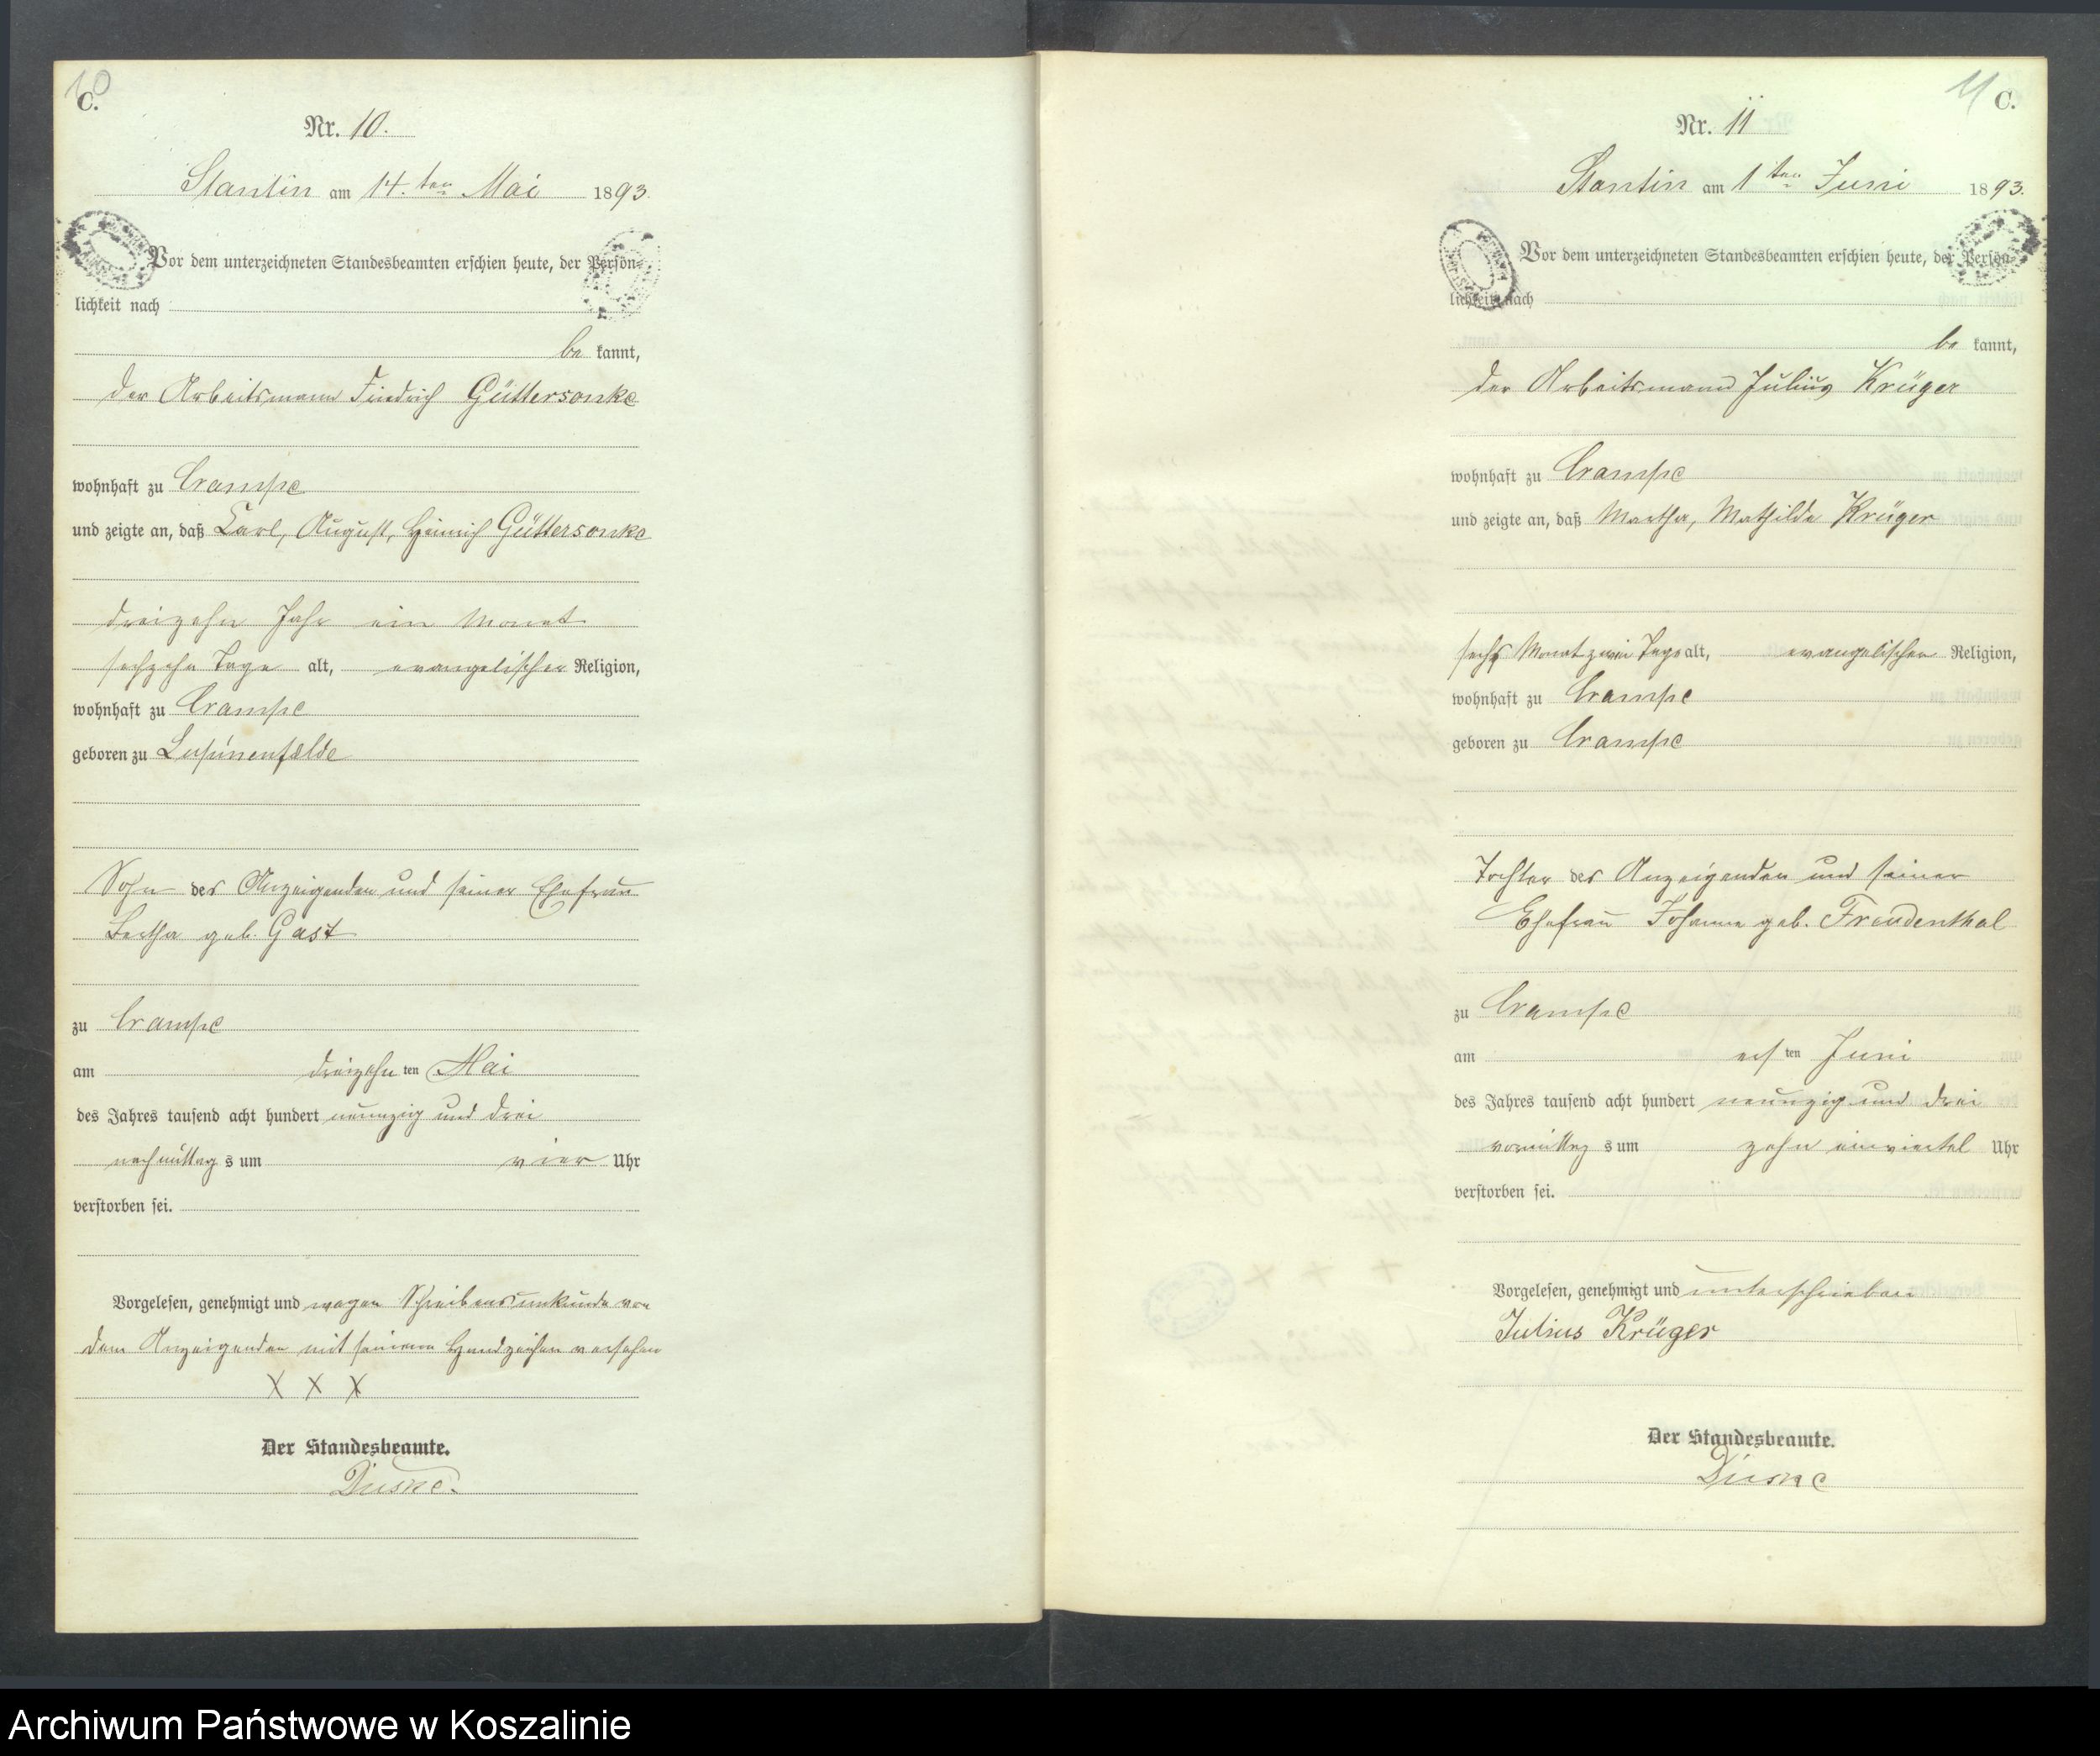 10
C.
Nr. 10.
Stantin am 14. ten Mai 1893.
Vor dem unterzeichneten Standesbeamten erschien heute, der Persön-
lichkeit nach
be kannt,
der Arbeitsmann Friedrich Güttersonke
wohnhaft zu Crampe
und zeigte an, daß Carl, August, Heinrich Güttersonke
dreizehn Jahr ein Monat
sechzehn Tage alt, evangelischer Religion,
wohnhaft zu Crampe
geboren zu Lupinenfelde
Sohn des Anzeigenden und seiner Ehefrau
Bertha geb. Gast
zu Crampe
am dreizehn ten Mai
des Jahres tausend acht hundert neunzig und drei
nachmittag s um vier Uhr
verstorben sei.
Vorgelesen, genehmigt und wegen Schreibensunkunde von
dem Anzeigenden mit seinem Handzeichen versehen
X X X
Der Standesbeamte.
11
C.
Nr. 11
Stantin am 1 ten Juni 1893.
Vor dem unterzeichneten Standesbeamten erschien heute, der Persön-
lichkeit nach
be kannt,
der Arbeitsmann Julius Krüger
wohnhaft zu Crampe
und zeigte an, daß Martha, Mathilde Krüger
sechs Monat zwei Tage alt, evangelischer Religion,
wohnhaft zu Crampe
geboren zu Crampe
Tochter des Anzeigenden und seiner
Ehefrau Johanne geb. Freudenthal
zu Crampe
am ersten Juni
des Jahres tausend acht hundert neunzig und drei
vormittag s um zehn einviertel Uhr
verstorben sei.
Vorgelesen, genehmigt und unterschrieben
Julius Krüger
Der Standesbeamte.
Archiwum Państwowe w Koszalinie